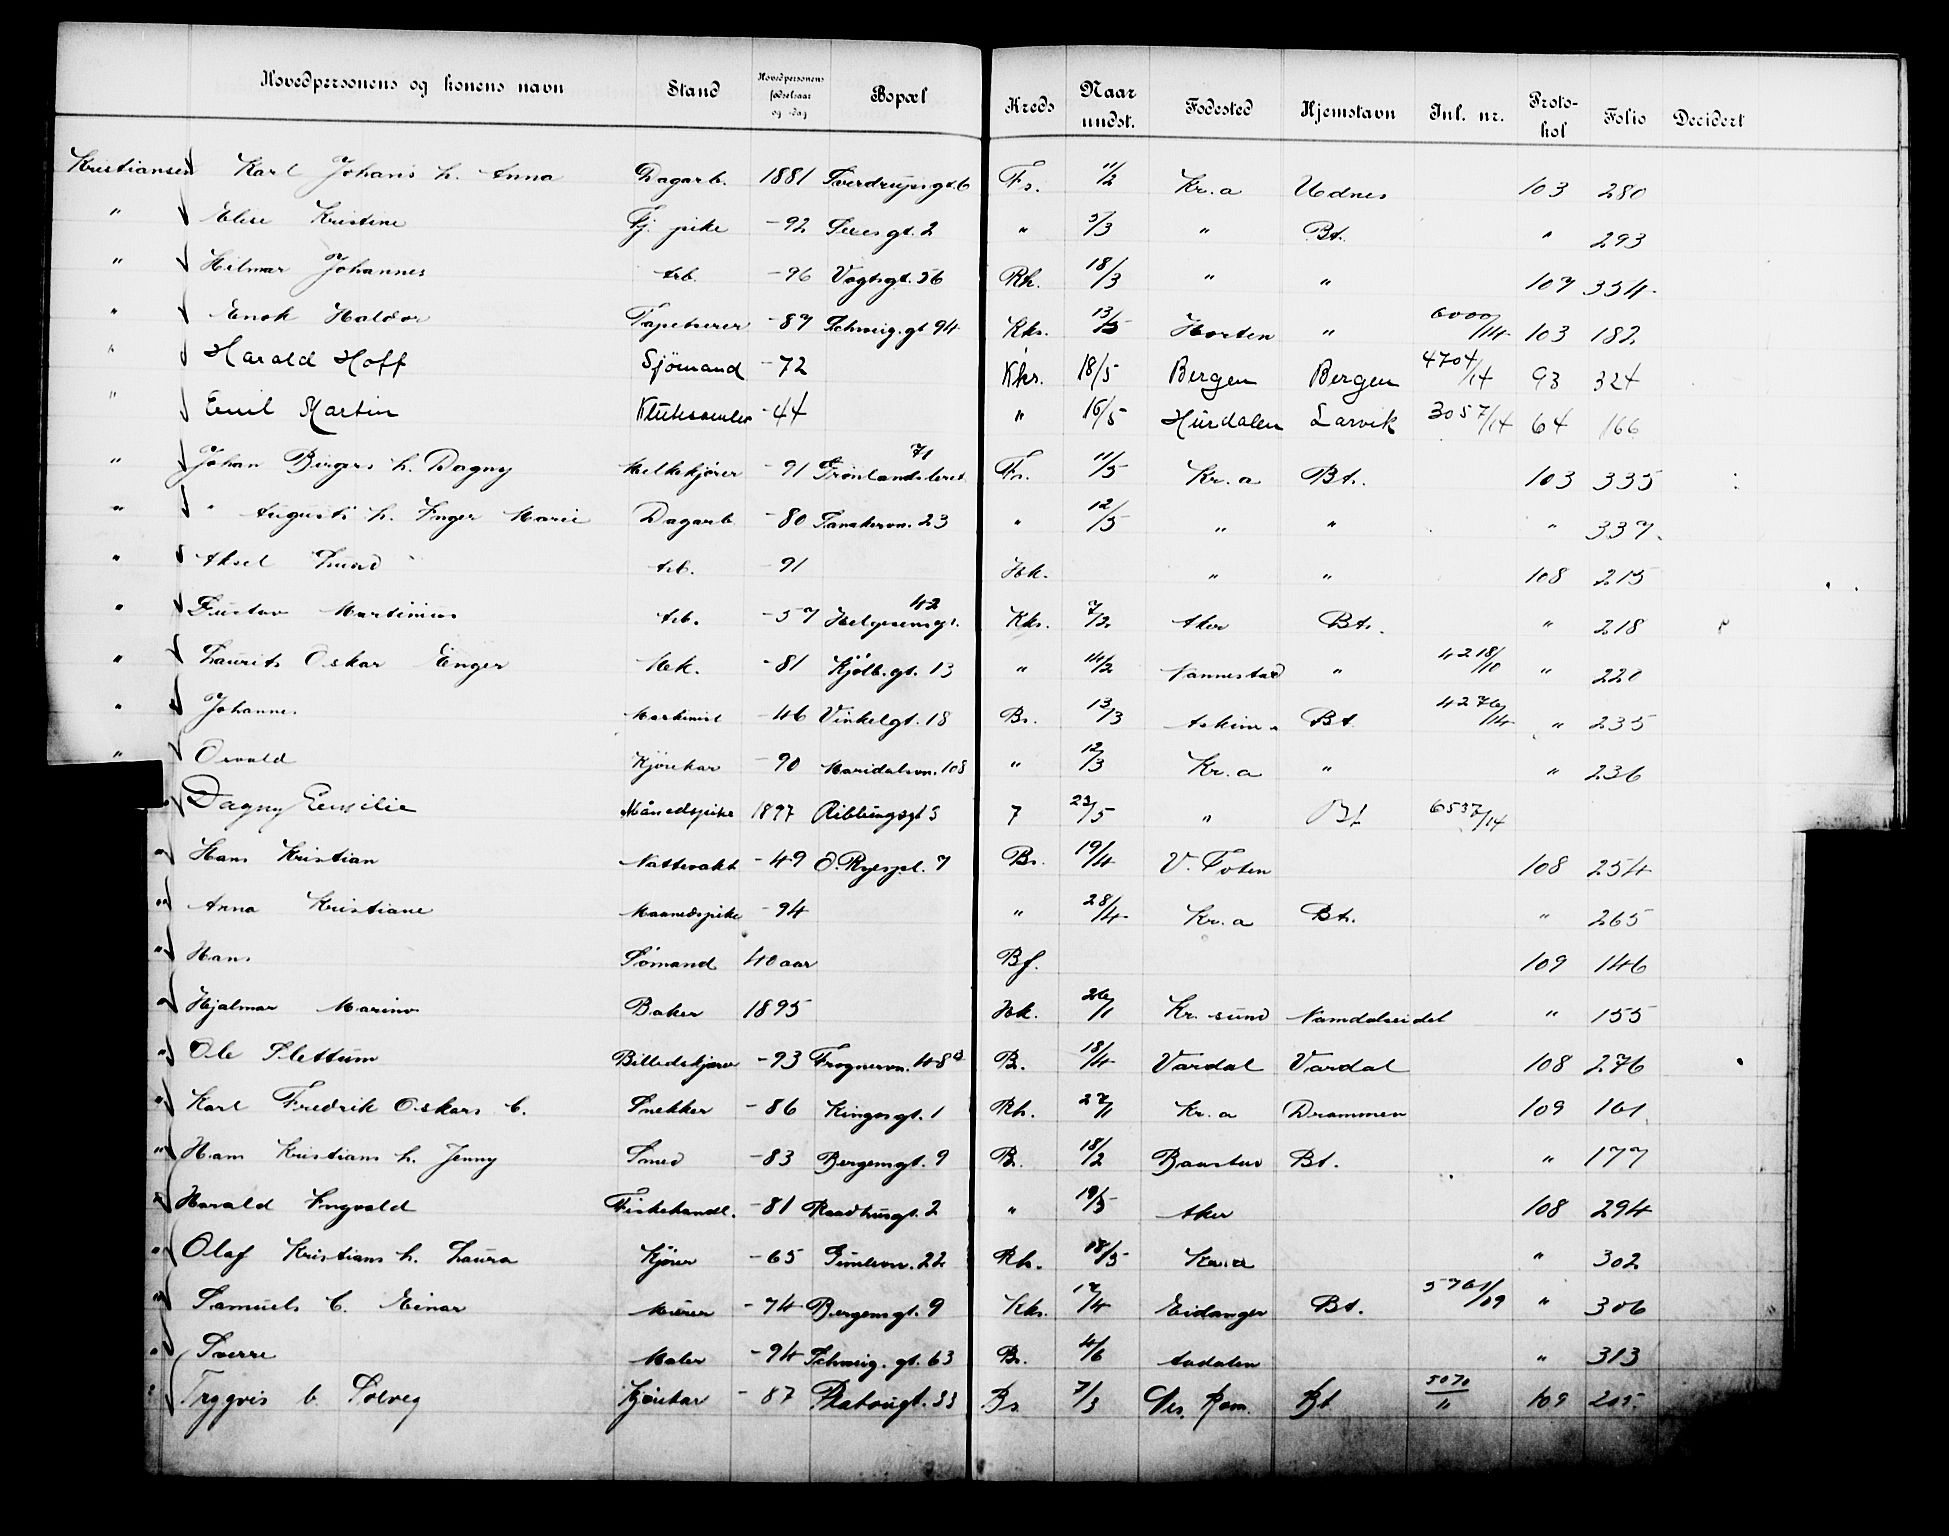 Hovedpersonens og konens navn Stand Hovedpersonens fødselsaar og -dag Bopæl Kreds Naar undst. Fødested Hjemstavn Jnl. nr. Protokol Folio Decidert
Kristiansen Karl Johans h. Anna Dagarb. 1881 Sverdrupsgt. 6 Fs. 11/2 Kr.a Udnes 103 280
" Elise Kristine Tj. pike -92 2 " 5/3 " Bt. " 293
" Hilmar Johannes Arb. -96 Vogtsgt. 36 Rh. 18/3 " " 107 334
" Enok Haldor Tapetserer -87 Schweig.gt 94 Kks. 13/5 Horten " 6000/14 103 182
" Harald Hoff Sjömand -72 Kks. 18/5 Bergen Bergen 4704/14 93 324
" Emil Martin Klutesamler -44 " 16/5 Hurdalen Larvik 3057/14 64 166
" Johan Birgers h. Dagny Melkekjører -91 Grønlandsleret 71 Fs. 11/5 Kr.a Bt. 103 335
" " Augusts h. Inger Marie Dagarb -80 23 " 12/5 " " " 337
" Aksel Arb. -91 Hk. " " 108 215
" Gustav Martinius Arb. -57 Helgesensgt. 42 Kks. 7/2 Aker Bt. " 218
" Laurits Oskar Enger Mek. -81 Kjölb.gt. 13 " 14/2 Nannestad " 4218/10 " 220
" Johannes Maskinist -46 Vinkelgt. 18 Bs. 13/3 Askim Bt. 4276/14 " 235
" Osvald Kjörekar -90 Maridalsvn. 108 " 12/3 Kr.a " " 236
Dagny Emilie Månedspike 1897 Ribbungsgt 3 7 23/5 " Bt 6537/14
" Hans Kristian Nattevakt -49 O. Ryespl. 7 Bs. 19/4 V. Toten 108 254
" Anna Kristiane Maanedspike -94 " 28/4 Kr.a Bt. " 265
" Hans Sömand 40 aar Bf. 109 146
" Hjalmar Marino Baker 1895 Hk. 26/1 Kr. sund Namdalseidet " 155
" Ole Slettum Billedskjærer -93 Frognervn. 48 B. 18/4 Vardal Vardal 108 276
" Karl Fredrik Oskars b. Snekker -86 Kingosgt. 1 Rh. 27/1 Kr.a Drammen 109 161
" Hans Kristians h. Jenny Smed -83 Bergensgt. 9 B. 18/2 Baastad Bt. " 177
" Harald Ingvald Fiskehandl. -81 Raadhusgt. 2 " 19/5 Aker 108 294
" Olaf Kristians h. Laura Kjører -65 22 Rh. 18/5 Kr.a " 302
" Samuels b. Einar Murer -74 Bergensgt. 9 Kks. 17/4 Eidanger Bt. 5761/09 " 306
" Sverre Maler -94 Schweig. gt. 63 Bs. 4/6 Aadalen " 313
" Trygvis b. Solveig Kjörekar -87 Platougt. 33 Bs. 7/3 Nes, Rom. Bt 5070/11 109 205